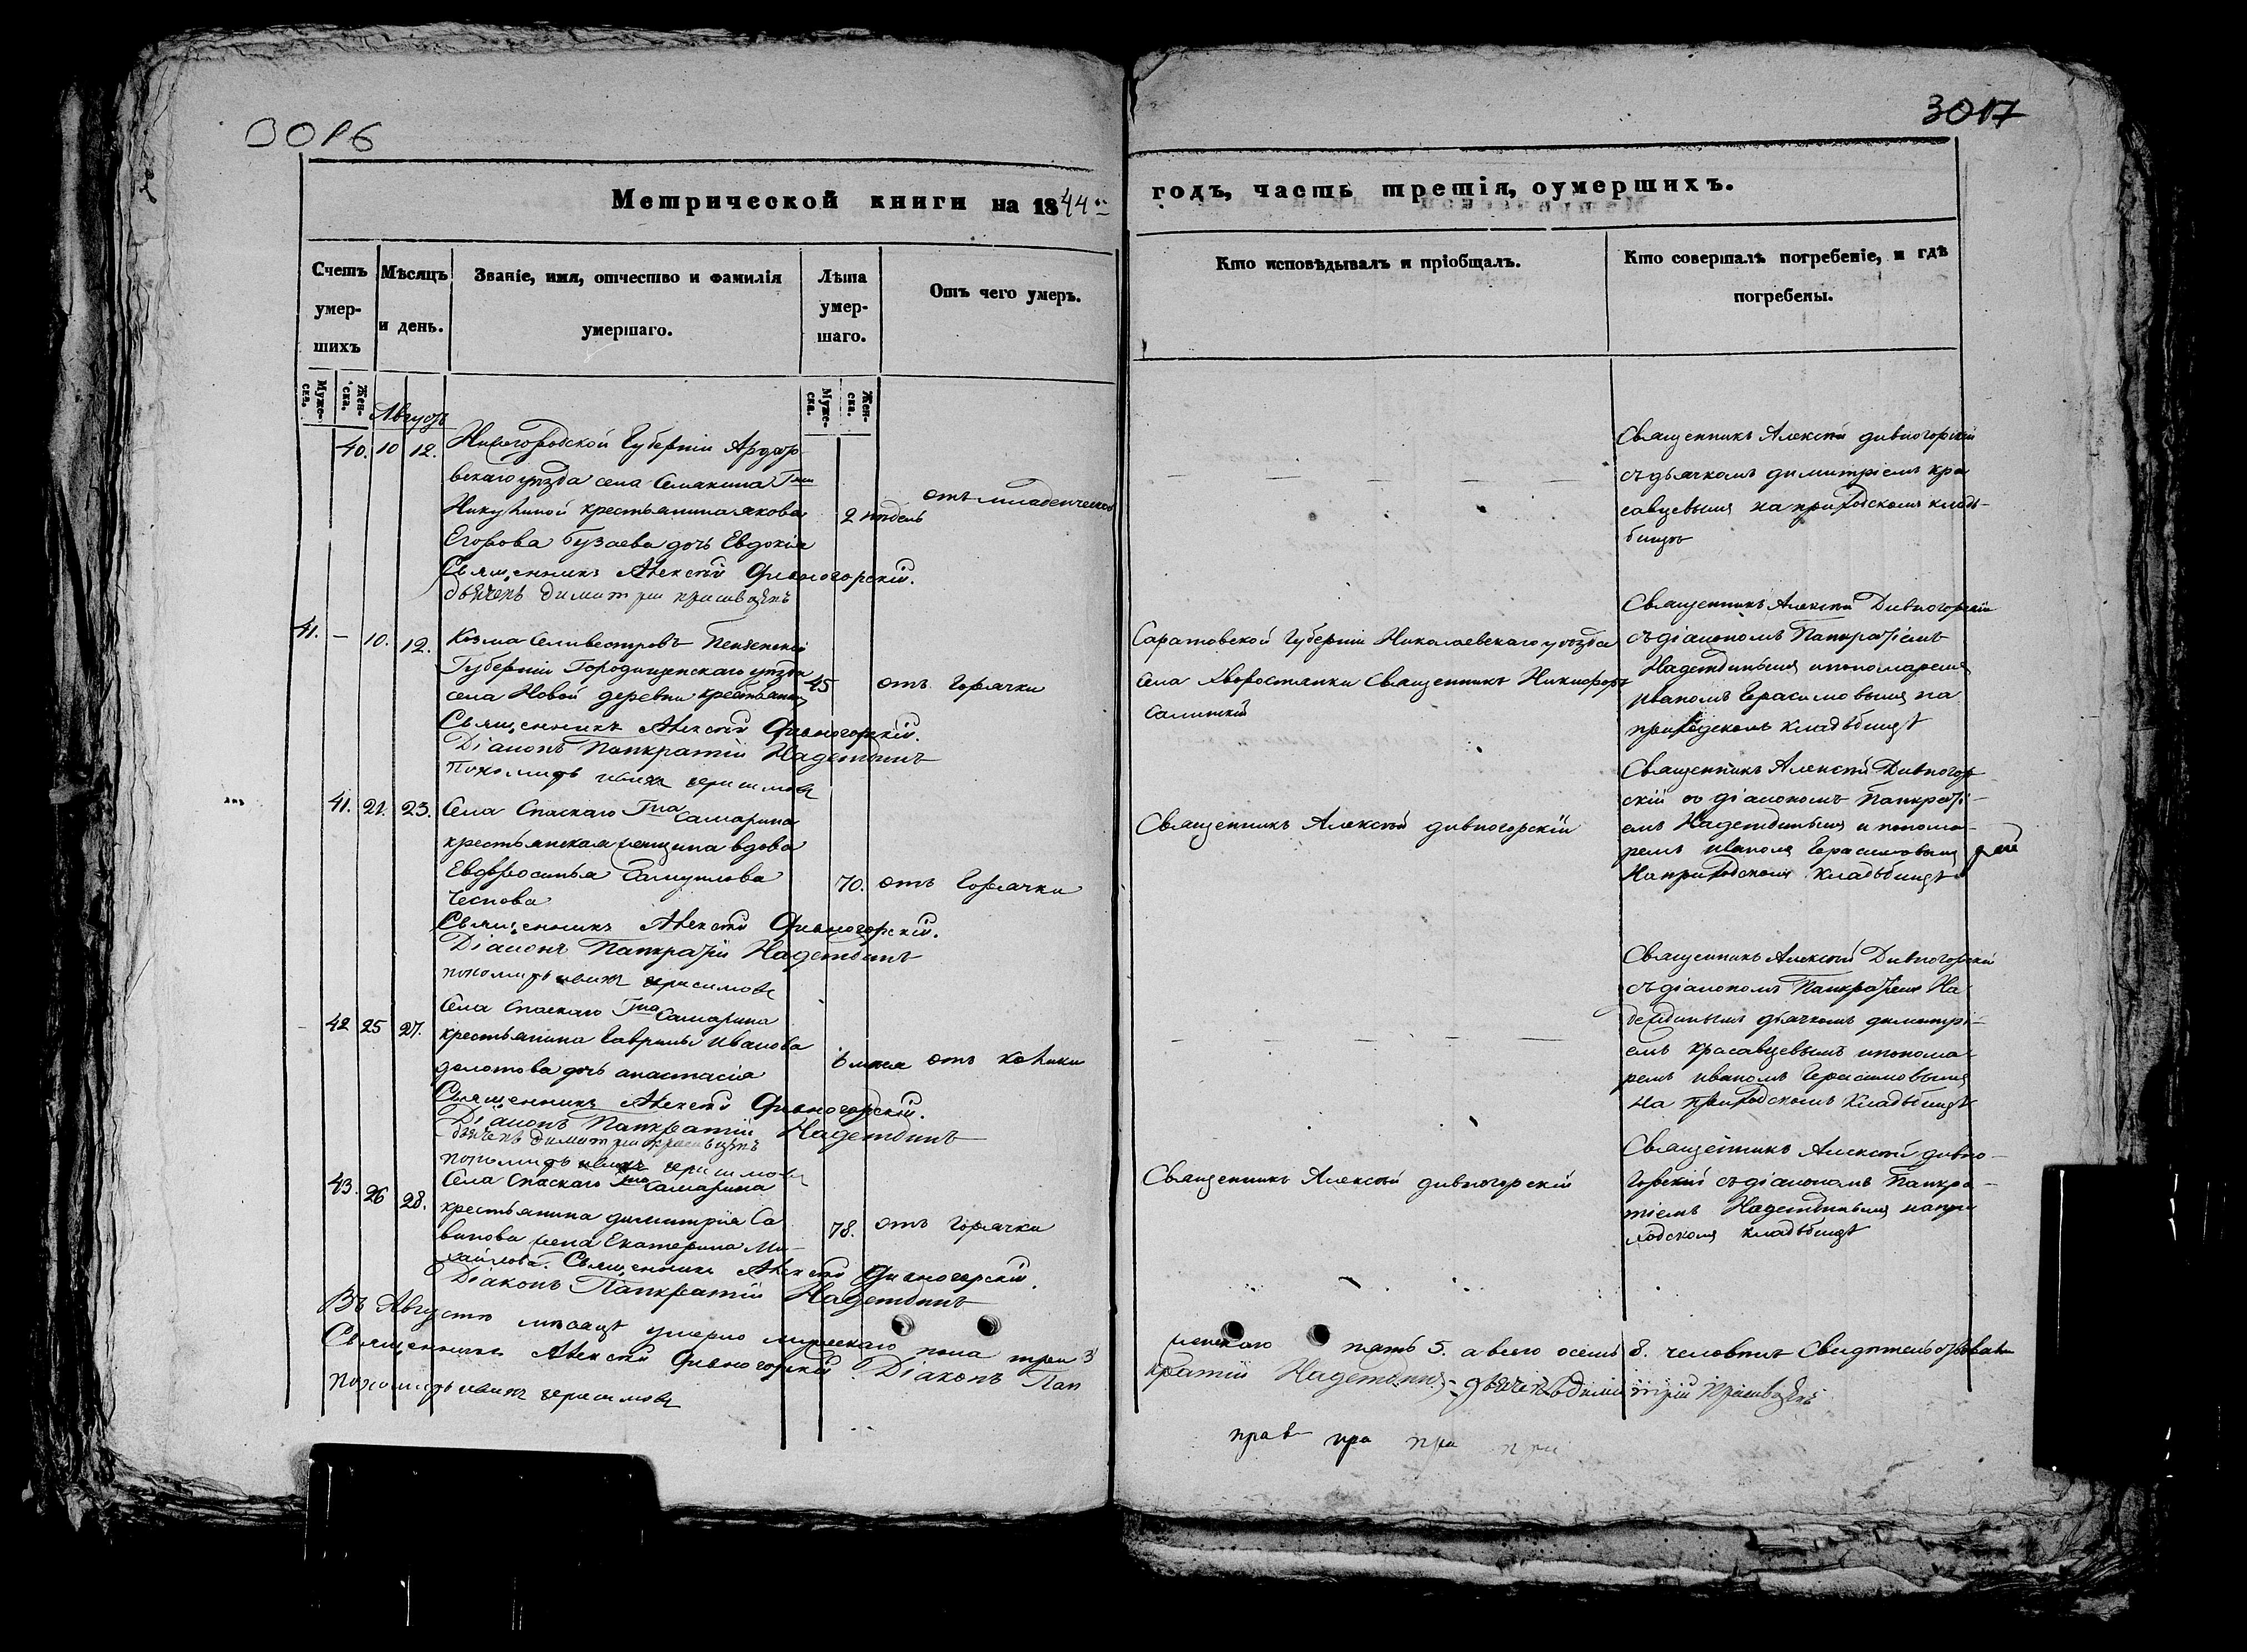 3016
3017
Метрической книги на 1844й
годъ, часть третія, оумершихъ.
Счетъ умер-шихъ
Мѣсяцъ и день.
Званіе, имя, отчество и фамилія умершаго.
Лѣта умер-шаго.
Отъ чего умеръ.
Кто исповѣдывалъ и пріобщалъ.
Кто совершалъ погребеніе, и гдѣ погребены.
Муже-ска.
Жен-ска.
Муже-ска.
Жен-ска.
Августъ
40. 10 12. Нижегородской Губерніи Ардато
вскаго уѣзда села Семакина Гжи
Никулиной крестьянина Якова
Егорова Бузаева дочь Евдокія
2 недель
отъ младенческой
Священникъ Алексѣй Дивногорскій.
дьячекъ димитрій красавцевъ
Священникъ Алексѣй дивногорскій
съ дьячкомъ димитріемъ кра
савцевымъ на приходскомъ клад-
бищѣ
41. – 10. 12. Козма Селивестровъ Пензенской
Губерніи Городищенскаго уѣзда
села Новой деревни крестьянинъ
45
отъ Горячки
Священникъ Алексѣй Дивногорскій.
Діаконъ Панкратій Надеждинъ
Пономарь иванъ герасимовъ
Саратовской Губерніи Николаевскаго уѣзда
села Хворостянки Священникъ Никифоръ
Салинскій
Священникъ Алексѣй Дивногорскій
съ діакономъ Панкратіемъ
Надеждинымъ и пономаремъ
иваномъ Герасимовымъ на
приходскомъ кладьбищѣ
41. 21. 23. Села Спаскаго Гна Самарина
крестьянская женщина вдова
Евдфросинья Самуилова
Чеснова
70. отъ Горячки
Священникъ Алексѣй Дивногорскій.
Діаконъ Панкратій Надеждинъ
пономарь иванъ герасимовъ
Священникъ Алексѣй дивногорскій
Священникъ Алексѣй Дивногор
скій съ діакономъ Панкраті-
емъ Надеждинымъ и понома-
ремъ иваномъ Герасимовымъ
На приходскомъ кладьбищѣ
42 25 27. Села Спаскаго Гна Самарина
крестьянина Гаврилы Иванова
долотова дочь анастасія
6 мѣся отъ
Священникъ Алексѣй Дивногорскій.
Діаконъ Панкратій Надеждинъ
дьячекъ димитрій красавцевъ
пономарь иванъ герасимовъ
Священникъ Алексѣй Дивногорскій
съ діакономъ Панкратіемъ На
деждинымъ дьячкомъ димитрі-
емъ красавцевымъ и понома-
ремъ иваномъ Герасимовымъ
на приходскомъ кладьбищѣ
43. 26 28. Села Спаскаго Гна Самарина
крестьянина димитрія Са
винова жена Екатерина Ми-
хайлова.
78. отъ Горячки
Священникъ Алексѣй Дивногорскій.
Діаконъ Панкратій Надеждинъ
Священникъ Алексѣй дивногорскій
Священникъ Алексѣй дивно-
горскій съ діакономъ Панкра-
тіемъ Надеждинымъ на при
ходскомъ кладьбищѣ
Въ Августѣ мѣсяцѣ умерло мужескаго пола три 3 женскаго пять 5. а всего осемь 8. человѣкъ Свидѣтельствовали
Священникъ Алексѣй Дивногорскій. Діаконъ Пан
кратій Надеждинъ. дьячекъ димитрій красавцевъ
Пономарь иванъ герасимовъ
прав пра при при